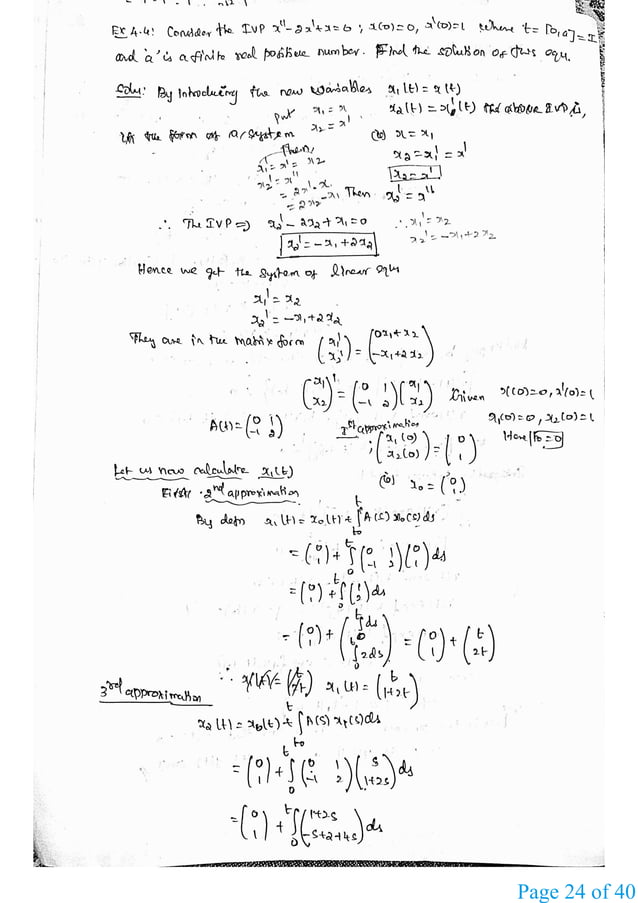 Ex 4.4: Consider the IVP x'' - 2x' + x = 0 ; x(0) = 0, x'(0) = 1 where t = [0, a] = I
and 'a' is a finite real positive number. Find the solution of this equ.
Soln: By Introducing the new variables x₁(t) = x(t)
put x₁ = x
x₂ = x'
x₂(t) = x₁'(t) the above IVP is,
in the form of a/system
(ie) x = x₁
x₂ = x₁' = x'
x₂ = x'
Then,
x₁' = x' = x₂
x₂' = x''
= 2x' - x
= 2x₂ - x₁
Then x₂' = x''
∴ The IVP ⇒ x₂' - 2x₂ + x₁ = 0
∴ x₁' = x₂
x₂' = -x₁ + 2x₂
x₂' = -x₁ + 2x₂
Hence we get the system of linear equ
x₁' = x₂
x₂' = -x₁ + 2x₂
They are in the matrix form (x₁' x₂') = (0x₁ + x₂ -x₁ + 2x₂)
(x₁ x₂)' = (0 1 -1 2) (x₁ x₂) Given x(0) = 0, x'(0) = 1
x₁(0) = 0, x₂(0) = 1
Here t₀ = 0
A(t) = (0 1 -1 2)
1st approximation
; (x₁(0) x₂(0)) = (0 1)
(ie) x₀ = (0 1)
Let us now calculate x₁(t)
First 2nd approximation
By defn x₁(t) = x₀(t) + ∫t₀^t A(s) x₀(s) ds
= (0 1) + ∫0^t (0 1 -1 2) (0 1) ds
= (0 1) + ∫0^t (1 2) ds
= (0 1) + (∫0^t ds ∫0^t 2ds) = (0 1) + (t 2t)
∴ x₁(t) = (t 1+2t)
3rd approximation
x₂(t) = x₀(t) + ∫t₀^t A(s) x₁(s) ds
= (0 1) + ∫0^t (0 1 -1 2) (s 1+2s) ds
= (0 1) + ∫0^t (1+2s -s+2+4s) ds
Page 24 of 40